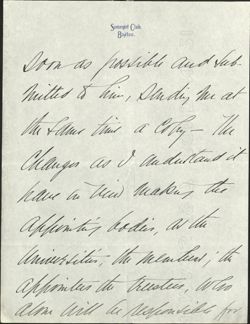 Somerset Club,
Boston.
soon as possible and sub-
mitted to him, sending me at
the same time a copy — The
changes as I understand it
have in view making the
appointing bodies, as the
Universities, the members; the
appointees the trustees, who
alone will be responsible for